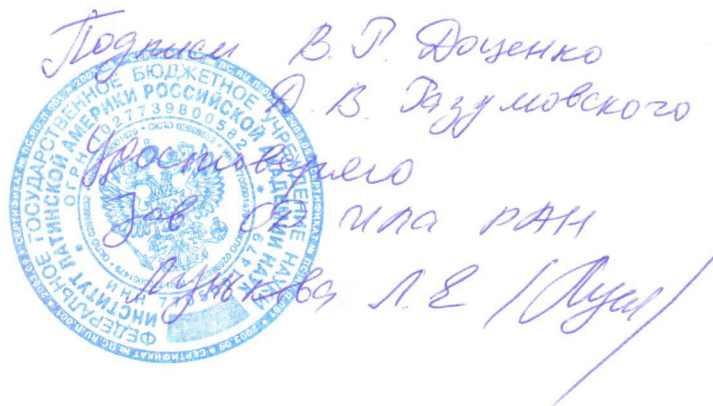 Подписи В. Р. Доценко
Д. В. Разумовского
Удостоверяю
Зав ОК ИЛА РАН
Лунькова Л. Е
ФЕДЕРАЛЬНОЕ ГОСУДАРСТВЕННОЕ БЮДЖЕТНОЕ УЧРЕЖДЕНИЕ НАУКИ
ИНСТИТУТ ЛАТИНСКОЙ АМЕРИКИ РОССИЙСКОЙ АКАДЕМИИ НАУК
ОГРН 1027739800582